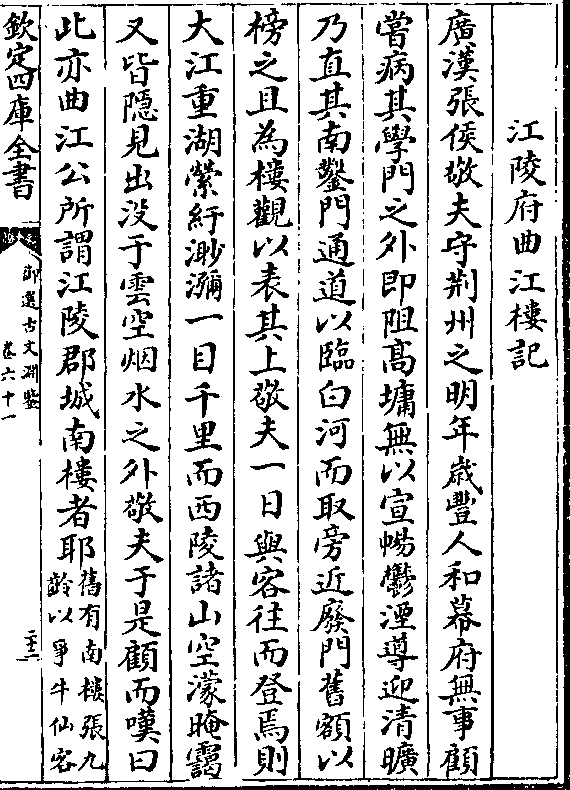 江陵府曲江樓記
廣漢張侯敬夫守荆州之明年歲豐人和幕府無事顧
嘗病其學門之外即阻髙墉無以宣暢鬱湮導迎清曠
乃直其南鑿門通道以臨白河而取旁近廢門舊額以
榜之且為樓觀以表其上敬夫一日與客往而登焉則
大江重湖縈紆渺瀰一目千里而西陵諸山空濛晻靄
又皆隠見出没于雲空烟水之外敬夫于是顧而嘆曰
此亦曲江公所謂江陵郡城南樓者耶
舊有南樓張九
齡以爭牛仙客
欽定四庫全書
御選古文淵鑒
卷六十一
二十三